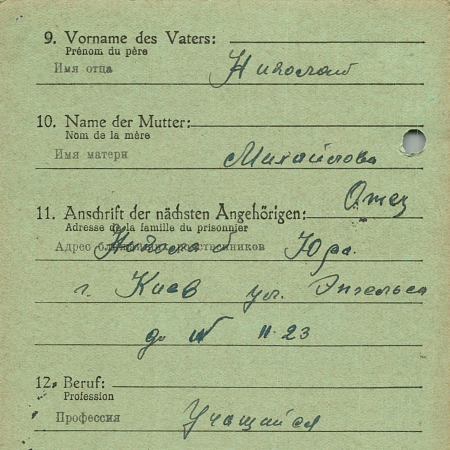 9. Vorname des Vaters:
Prénom du père
Имя отца
Николай
10. Name der Mutter:
Nom de la mère
Имя матери
Михайлова
Отец
11. Anschrift der nächsten Angehörigen:
Adresse de la famille du prisonnier
Адрес ближайших родственников
Юра.
г. Киев ул. Энгельса
до № 11-23
12. Beruf:
Profession
Профессия
Учащийся